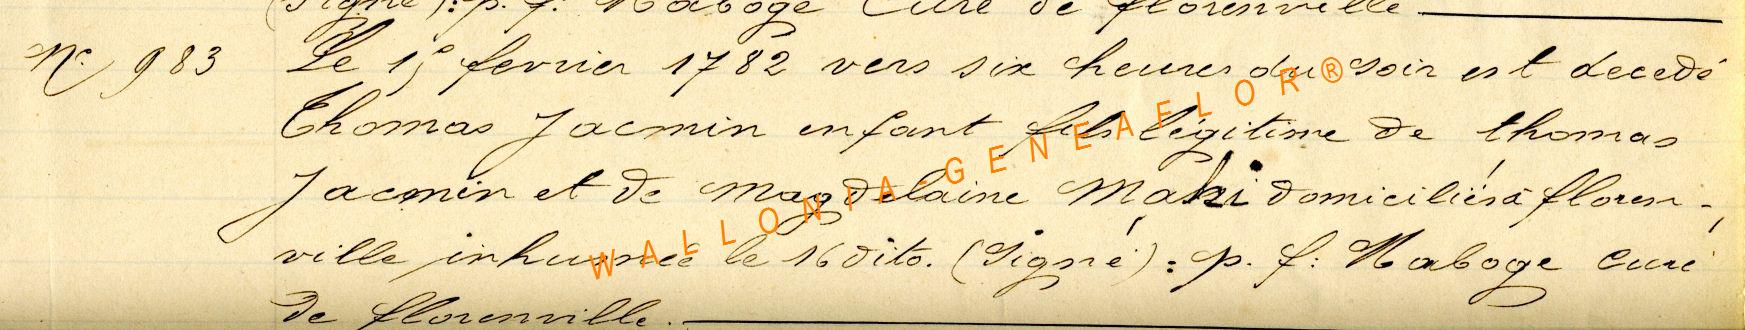 (Signé): p. f. Naboge Curé de florenville.
N° 983 Le 15 fevrier 1782 vers six heures du soir est decedé
Thomas Jacmin enfant fils légitime de thomas
Jacmin et de Magdelaine Mahi domiciliés à floren-
ville inhumée le 16 dito. (Signé): p. f: Naboge Curé
de florenville.
WALLONIA-GENEAELOR®